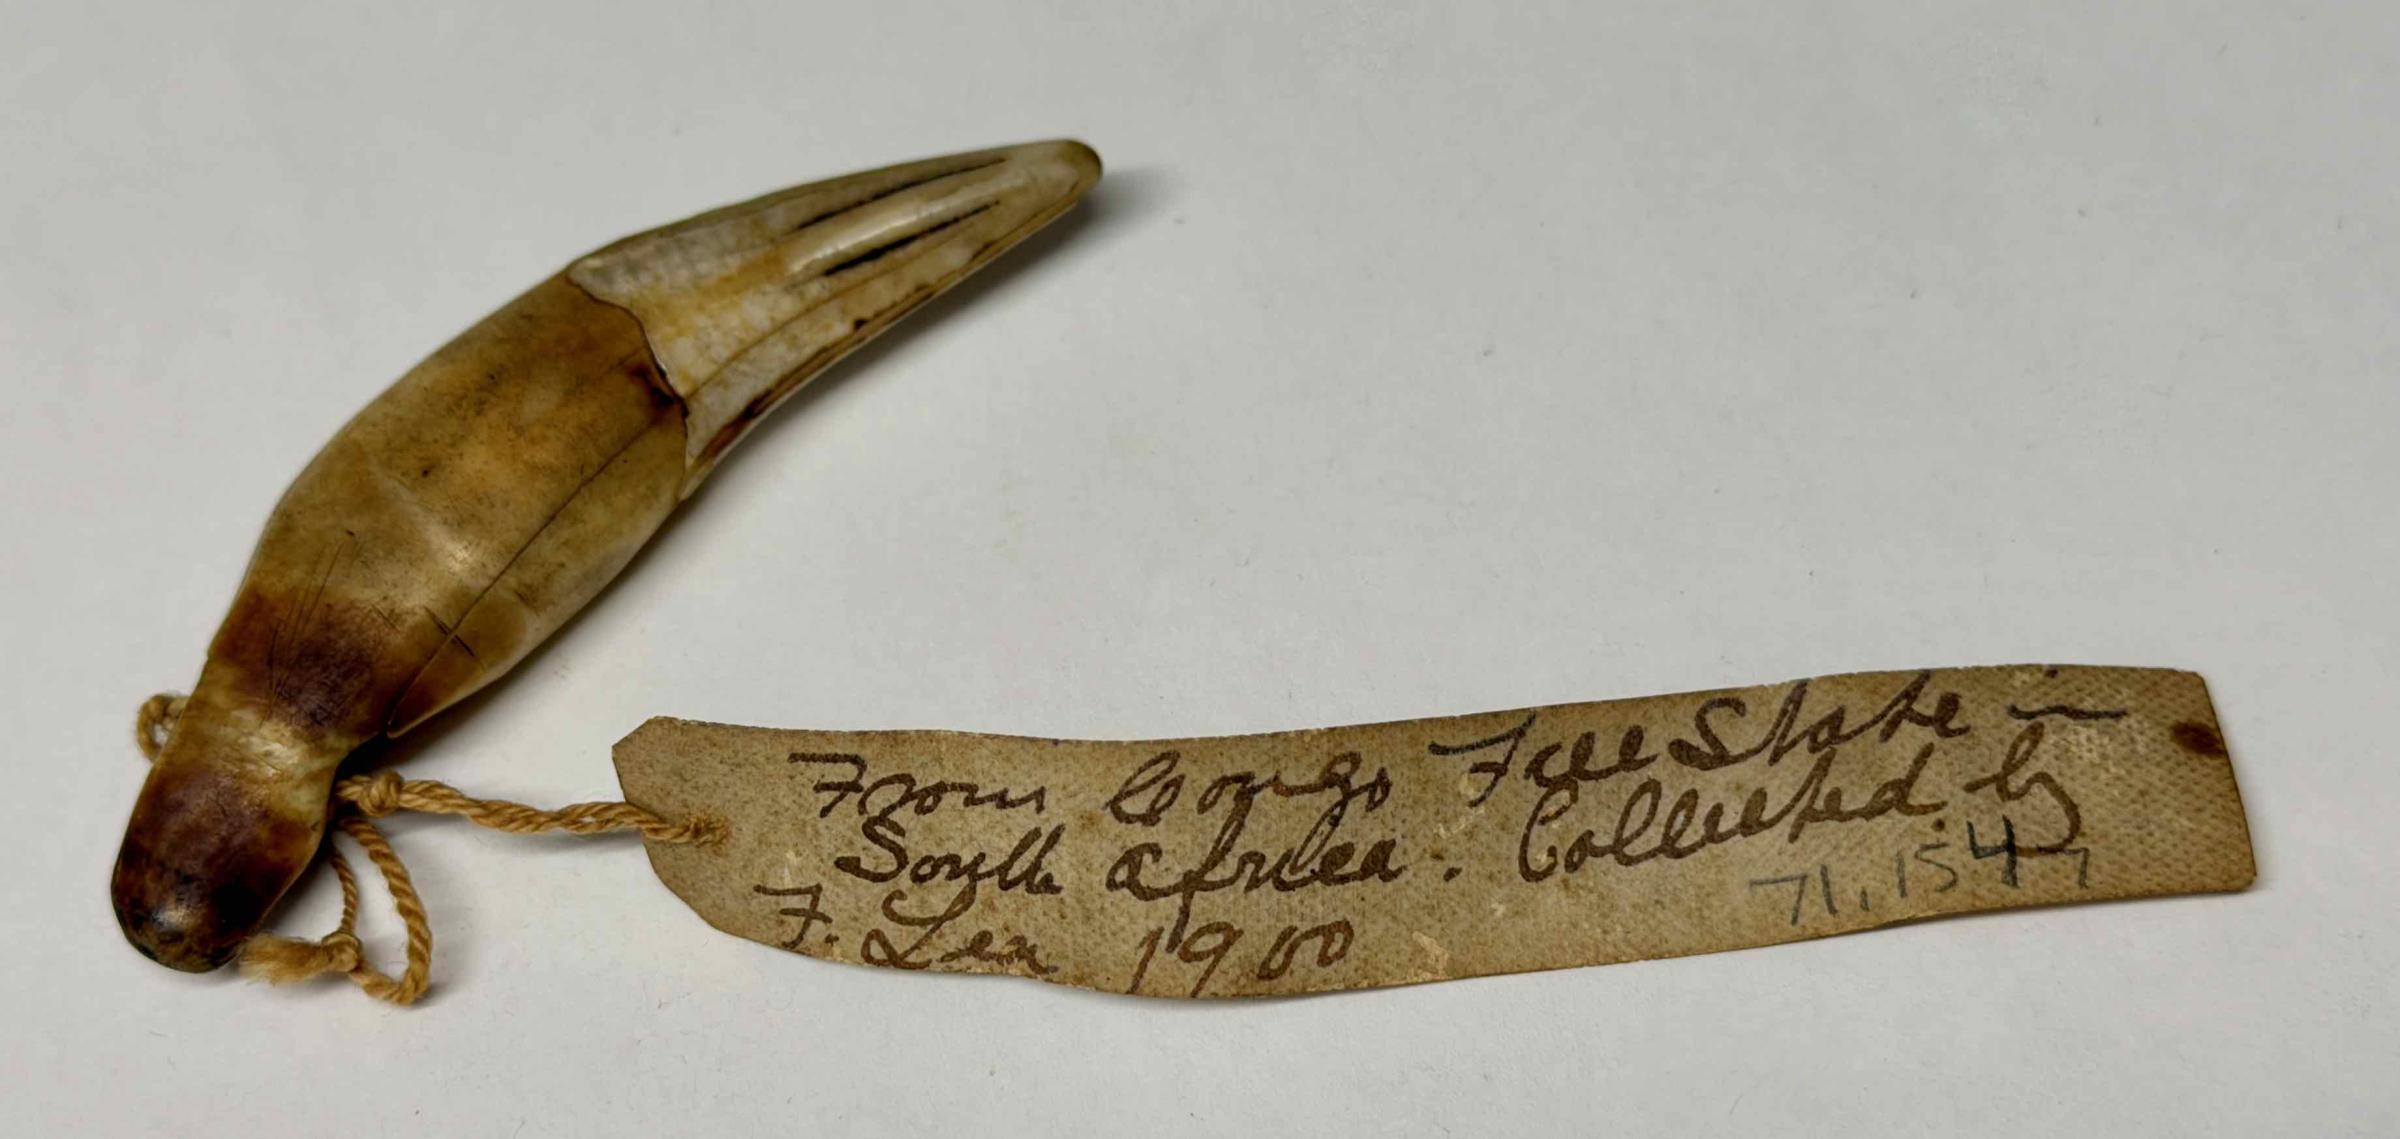 From Congo Free State in
South Africa. Collected by
F. Lea 1900
71.1547